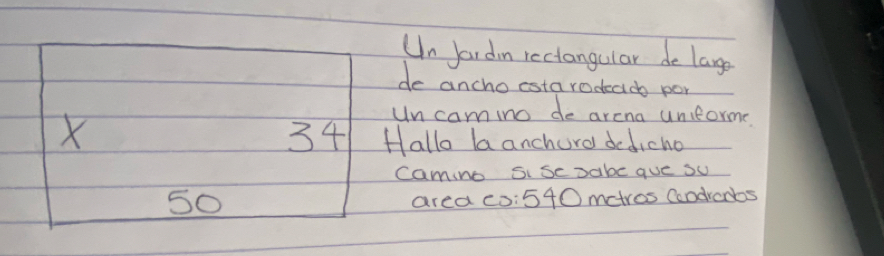 Un Jardin rectangular de largo
de ancho esta rodeado por
un camino de arena uniforme.
Halla la anchura de dicho
camino si se sabe que su
area es: 540 metros cuadrados
X
34
50